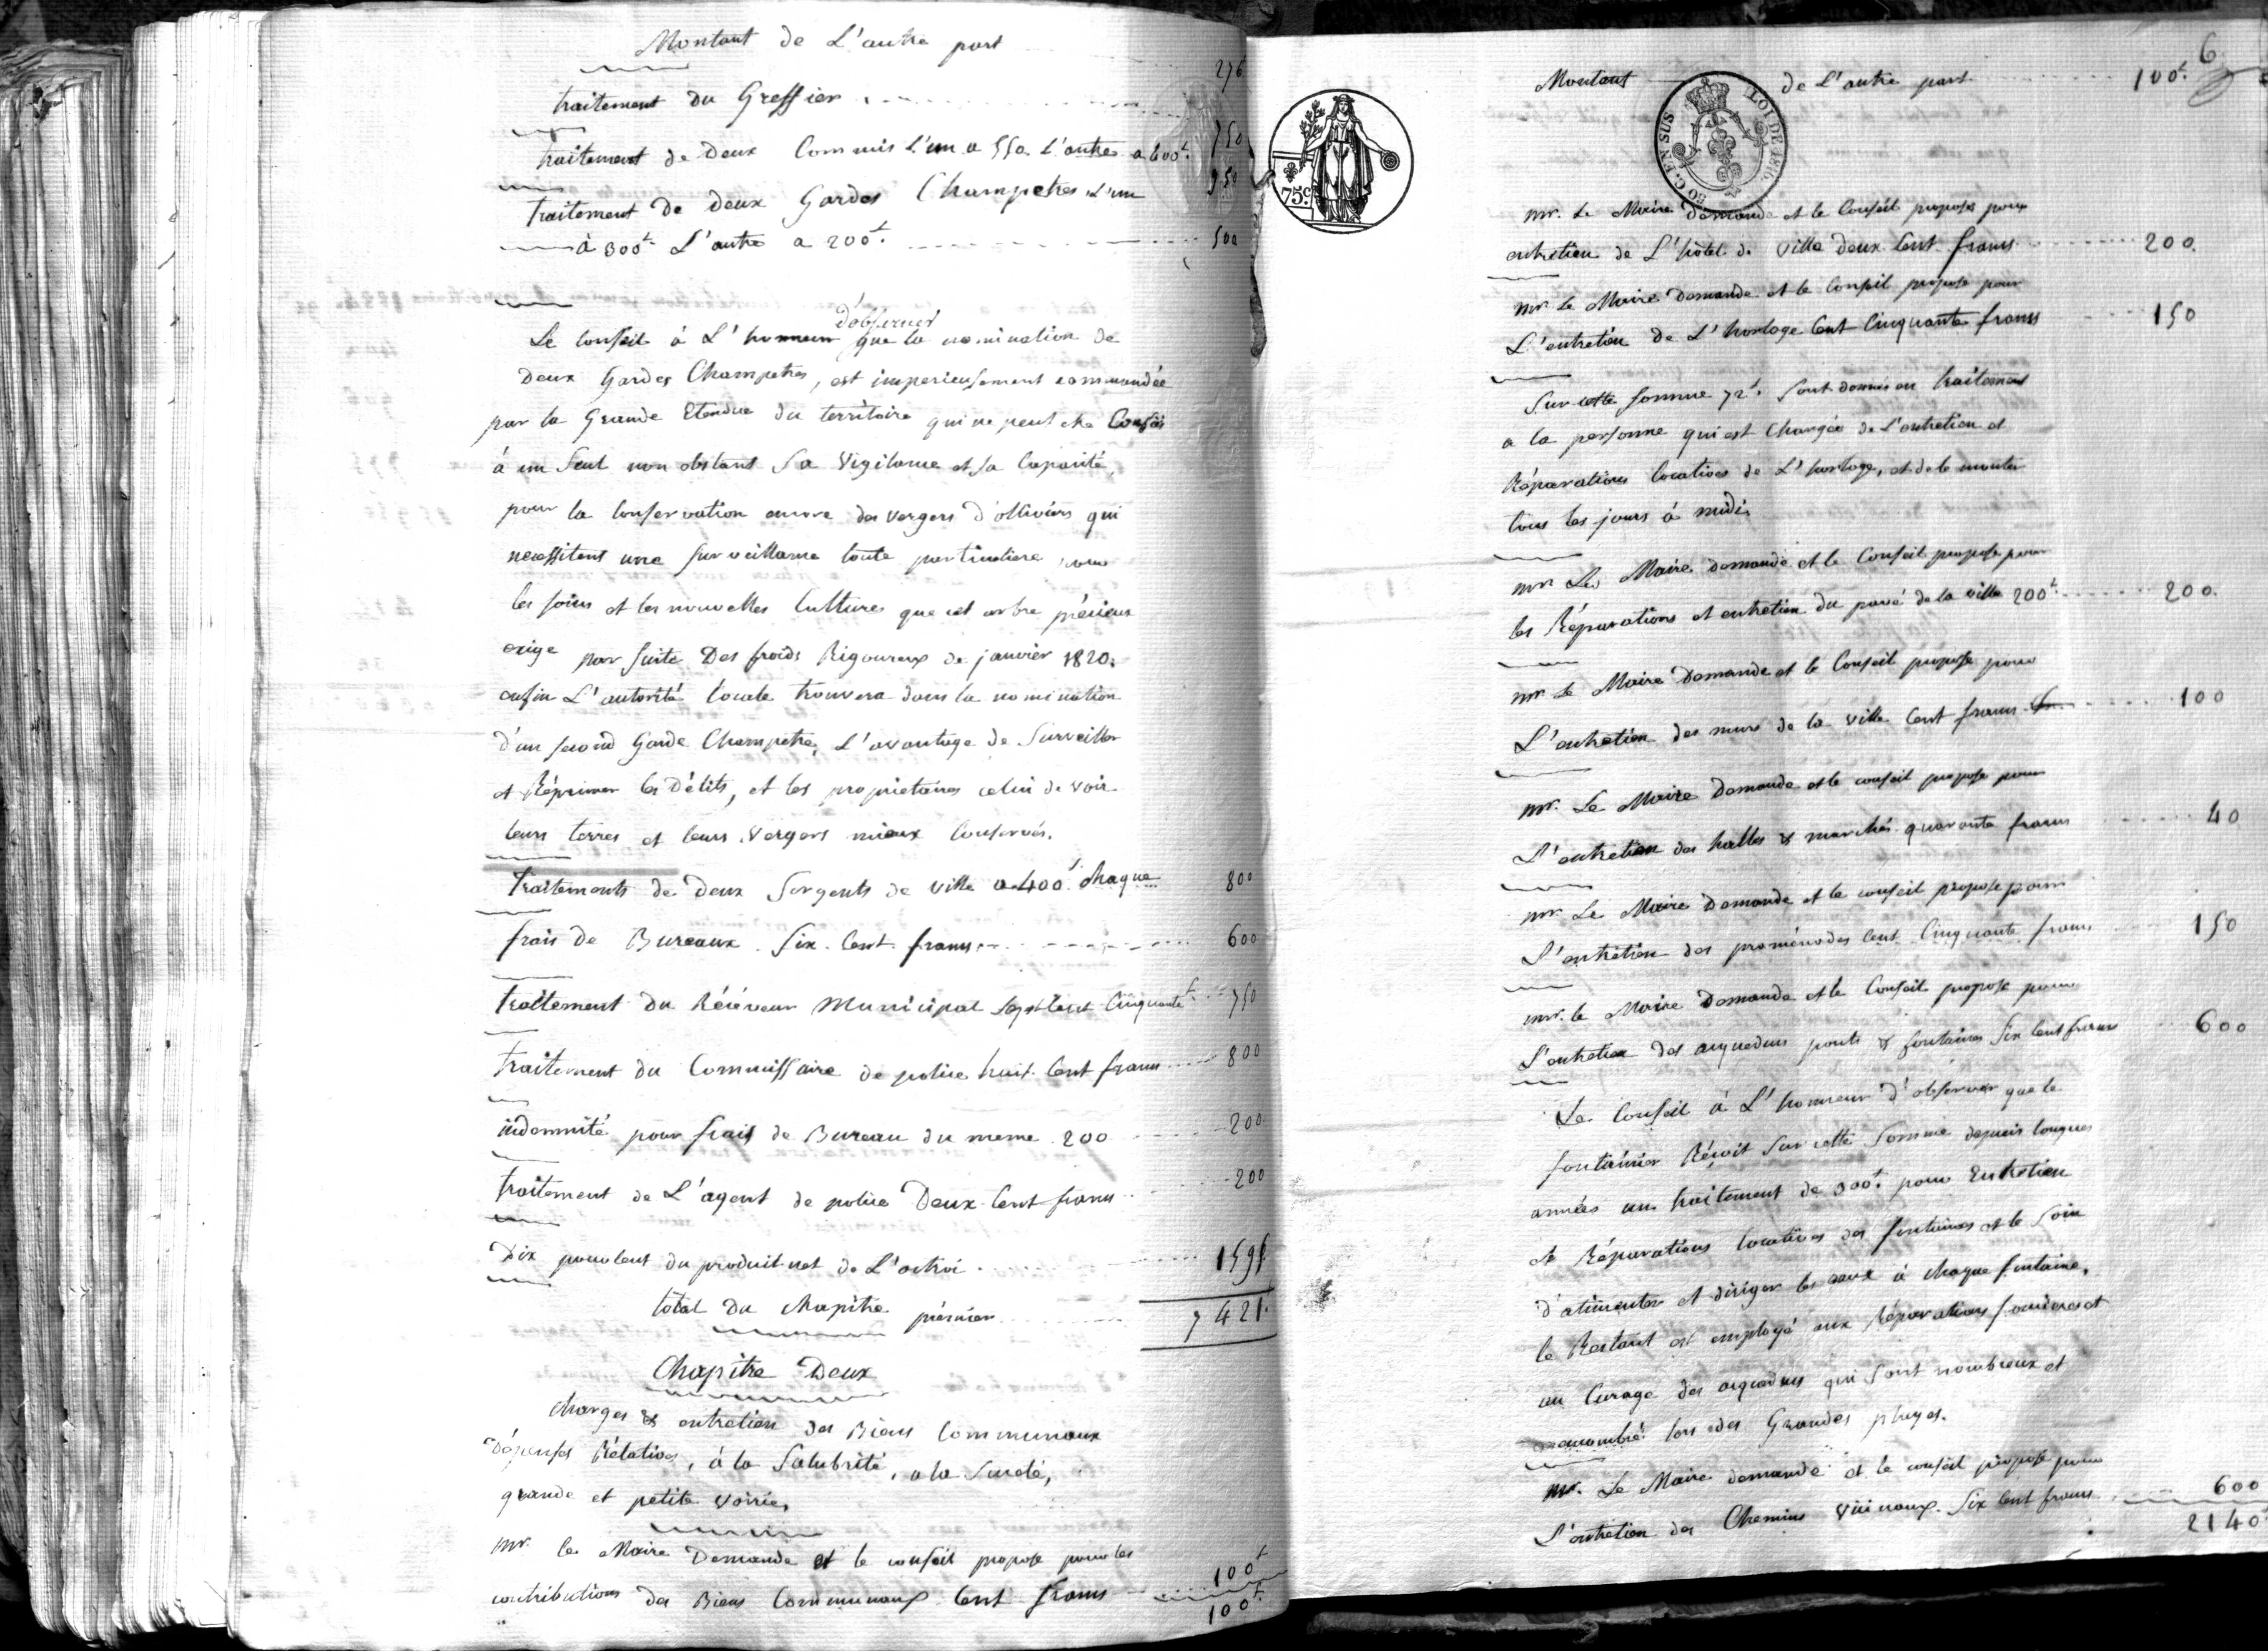 Montant de L'autre part 276
traitement du Greffier 750
traitement de deux Commis l'un a 550 L'autre a 400# 950
traitement De deux Gardes Champetres L'un
à 300# L'autre a 200# 500
d'observer
Le Conseil à L'honneur que la nomination de
Deux Gardes Champetres, est imperieusement commandée
par la Grande Etendue du territoire qui ne peut etre Confiée
à un Seul non obstant Sa Vigilance et sa Capacité,
pour la Conservation encore des vergers d'olliviers qui
necessitent une surveillance toute particuliere pour
les soins et les nouvelles Cultures que cet arbre précieux
exige par suite Des froids Rigoureux de janvier 1820.
enfin L'autorité locale trouvera dans la nomination
d'un second Garde Champetre, L'avantage de Surveiller
et Réprimer les Délits, et les proprietaires celui de voir
leurs terres et leurs vergers mieux Conservés.
Traitements de deux Sergents de ville a 400# chaque 800
frais de Bureaux Six Cent francs 600
Traitement du Réceveur Municipal Sept Cent Cinquante# 750
Traitement du Commissaire de police huit Cent francs 800
indemnité pour frais de Bureau du meme 200 200
Traitement de L'agent de police Deux Cent francs 200
Dix pour Cent du produit net de L'octroi 1595
total du chapitre prémier 7421#
Chapitre Deux
Charges & entretien des Biens Communaux
Dépenses Rélatives, à la Salubrité, a la Sureté,
grande et petite voirie,
Mr. le Maire Demande et le conseil propose pour les
contributions des Biens Communaux Cent francs 100#
100#
6
Montant de L'autre part 100#
75c.
30 C. EN SUS
LOI DE 1816.
Mr. Le Maire Demande et le Conseil propose pour
entretien de L'hôtel de ville deux Cent francs 200.
Mr Le Maire Demande et le Conseil propose pour
L'entretien de L'horloge Cent Cinquante francs 150
Sur cette somme 72# sont donnés en traitement
a la personne qui est Chargée de L'entretien et
Réparations locatives de L'horloge, et de le monter
tous les jours à midi.
Mr Le Maire demande et le Conseil propose pour
les Réparations et entretien du pavé de la ville 200# 200.
Mr Le Maire Demande et le Conseil propose pour
L'entretien des murs de la ville Cent francs 100
Mr. Le Maire Demande et le conseil propose pour
L'entretien des halles & marchés quarante francs 40
Mr Le Maire Demande et le conseil propose pour
L'entretien des promenades Cent Cinquante francs 150
Mr. le Maire Demande et le Conseil propose pour
L'entretien des acqueducs ponts & fontaines Six Cent francs 600
Le Conseil à L'honneur d'observer que le
fontainier Réçoit Sur cette Somme depuis longues
années un traitement de 300# pour Entretien
et Réparations locatives des fontaines et le Soin
d'alimenter et diriger les eaux à chaque fontaine,
le Restant est employé aux Réparations foncieres et
au Curage des acqueducs qui Sont nombreux et
lors des Grandes pluyes.
Mr. Le Maire demande et le conseil propose pour
L'entretien des Chemins Vicinaux Six Cent francs 600
2140#